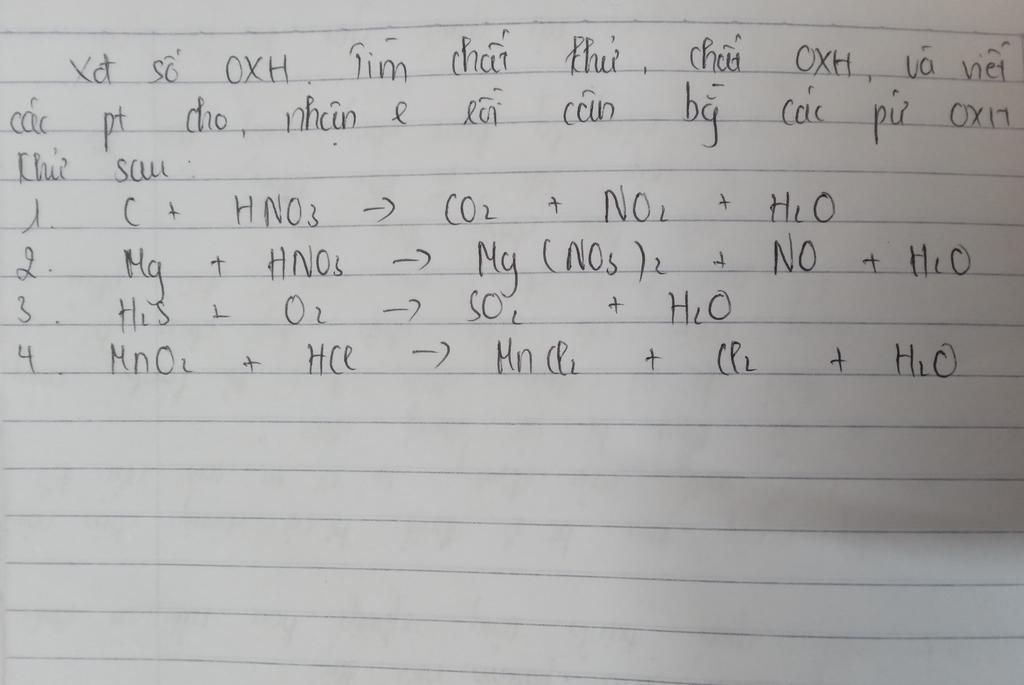 Xđ số OXH. Tìm chất khử, chất OXH, và viết
các pt cho, nhận e rồi cân bg các pứ OXH
khử sau:
1. C + HNO3 → CO2 + NO2 + H2O
2. Mg + HNO3 → Mg(NO3)2 + NO + H2O
3. H2S + O2 → SO2 + H2O
4. MnO2 + HCl → MnCl2 + Cl2 + H2O